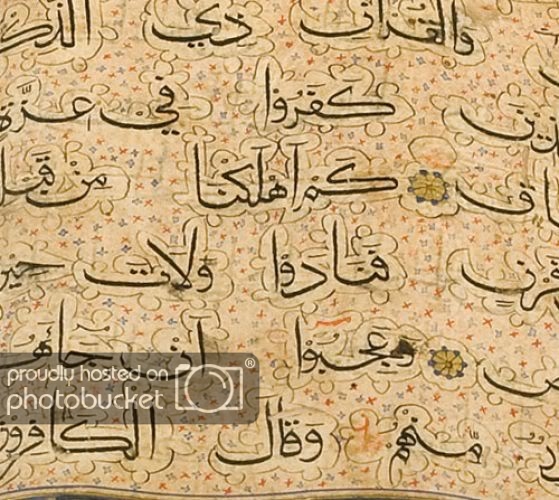 وَالْقُرْآنِ ذِي الذِّكْ
يْنَ كَفَرُوْا فِيْ عِزَّةٍ
اق كَمْ أَهْلَكْنَا مِنْ قَبْلِ
قَرْنٍ فَنَادَوْا وَلَاتَ حِيْنَ
ص وَعَجِبُوْا أَنْ جَاءَهُ
مِنْهُمْ وَقَالَ الْكَافِرُوْنَ
proudly hosted on
photobucket®